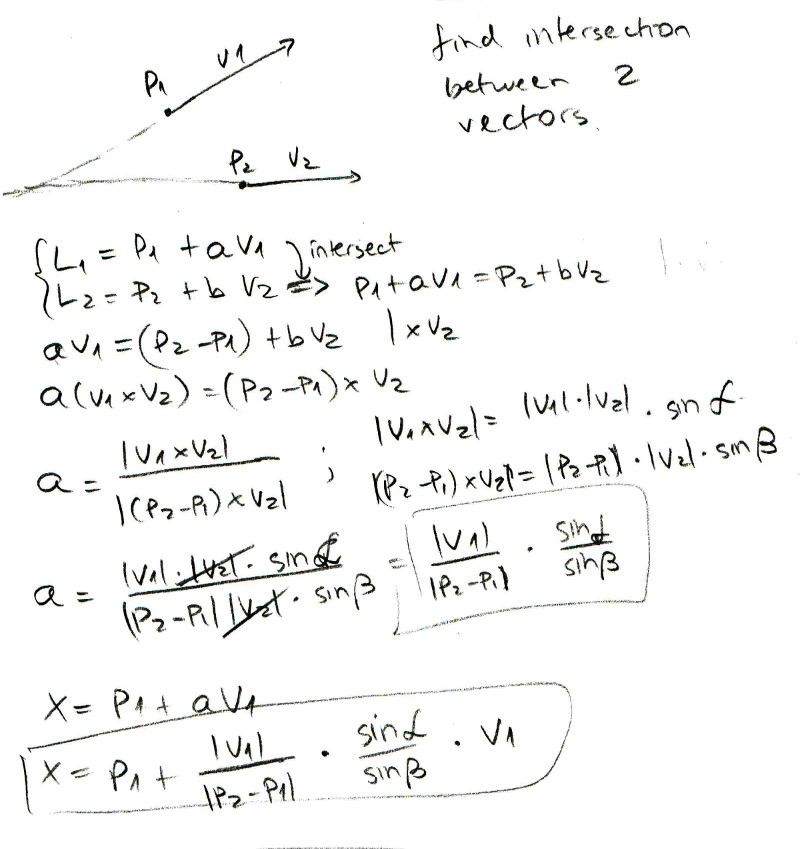 find intersection
between 2
vectors.
P1 V1
P2 V2
{L1 = P1 + aV1 } intersect
{L2 = P2 + b V2 => P1 + aV1 = P2 + bV2
aV1 = (P2 - P1) + bV2 | x V2
a(V1 x V2) = (P2 - P1) x V2
a = |V1 x V2| / |(P2 - P1) x V2| ; |V1 x V2| = |V1| · |V2| · sin α
|(P2 - P1) x V2| = |P2 - P1| · |V2| · sin β
a = |V1| · |V2| · sin α / |P2 - P1| |V2| · sin β = |V1| / |P2 - P1| · sin α / sin β
X = P1 + aV1
X = P1 + |V1| / |P2 - P1| · sin α / sin β · V1